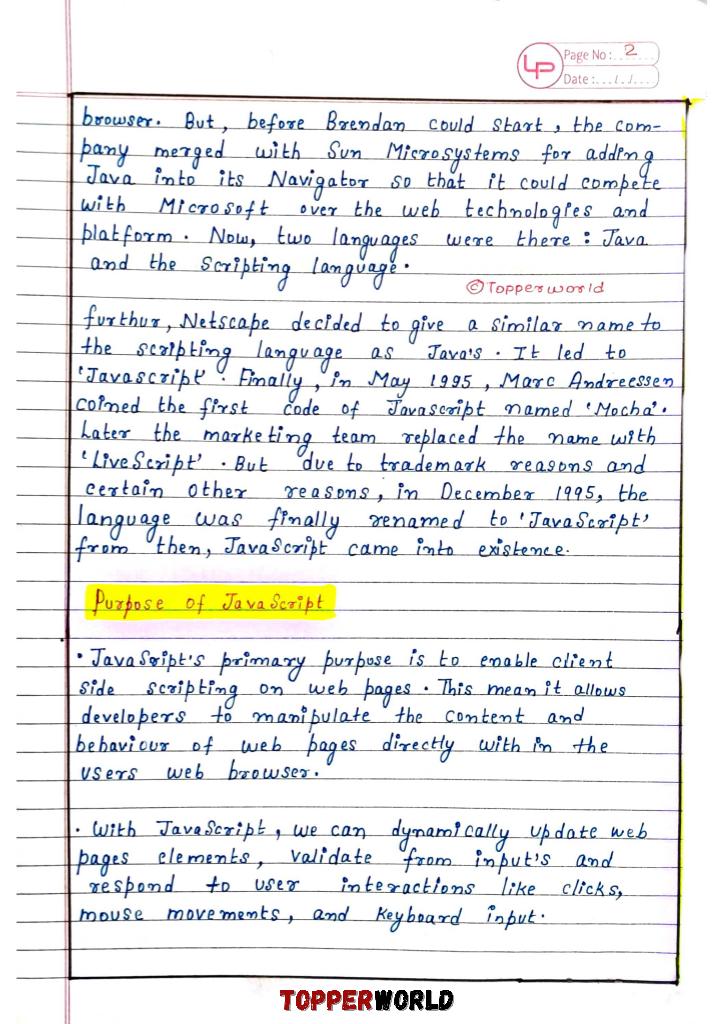 LP
Page No: 2
Date: .../../...
browser. But, before Brendan could start, the com-
pany merged with Sun Microsystems for adding
Java into its Navigator so that it could compete
with Microsoft over the web technologies and
platform. Now, two languages were there : Java
and the scripting language.
©Topperworld
furthur, Netscape decided to give a similar name to
the scripting language as Java's. It led to
'Javascript'. Finally, in May 1995, Marc Andreessen
coined the first code of Javascript named 'Mocha'.
Later the marketing team replaced the name with
'LiveScript'. But due to trademark reasons and
certain other reasons, in December 1995, the
language was finally renamed to 'JavaScript'
from then, JavaScript came into existence.
Purpose of JavaScript
• JavaSript's primary purpose is to enable client
side scripting on web pages. This mean it allows
developers to manipulate the content and
behaviour of web pages directly with in the
users web browser.
• With JavaScript, we can dynamically update web
pages elements, validate from input's and
respond to user interactions like clicks,
mouse movements, and keyboard input.
TOPPERWORLD